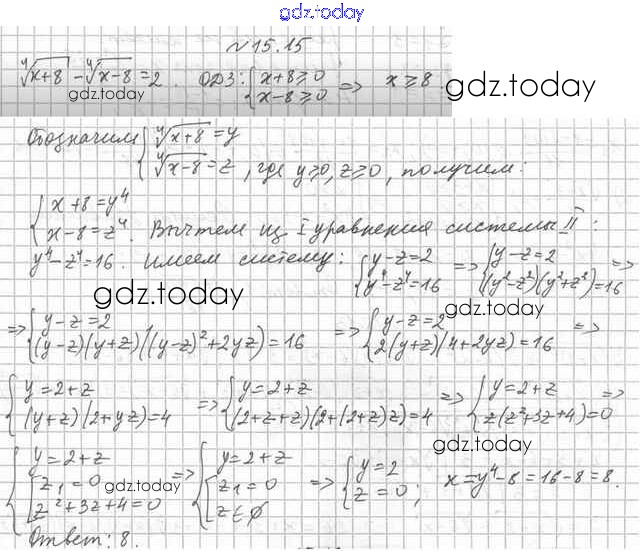 gdz.today
№15.15
⁴√(x+8) - ⁴√(x-8) = 2. ОДЗ: { x+8⩾0 x-8⩾0 => x⩾8
gdz.today
gdz.today
Обозначим { ⁴√(x+8) = y
⁴√(x-8) = z, где y⩾0, z⩾0, получим:
{ x+8=y⁴
x-8=z⁴. Вычтем из I уравнения системы II:
y⁴-z⁴=16. Имеем систему: { y-z=2 y⁴-z⁴=16 => { y-z=2 (y²-z²)(y²+z²)=16 =>
gdz.today
gdz.today
=> { y-z=2 (y-z)(y+z)((y-z)²+2yz)=16 => { y-z=2 2(y+z)(4+2yz)=16 =>
{ y=2+z (y+z)(2+yz)=4 => { y=2+z (2+z+z)(2+(2+z)z)=4 => { y=2+z z(z²+3z+4)=0 =>
gdz.today
{ y=2+z [ z₁=0 z²+3z+4=0 => { y=2+z [ z₁=0 z∈∅ => { y=2 z=0; x=y⁴-8=16-8=8.
gdz.today
Ответ: 8.